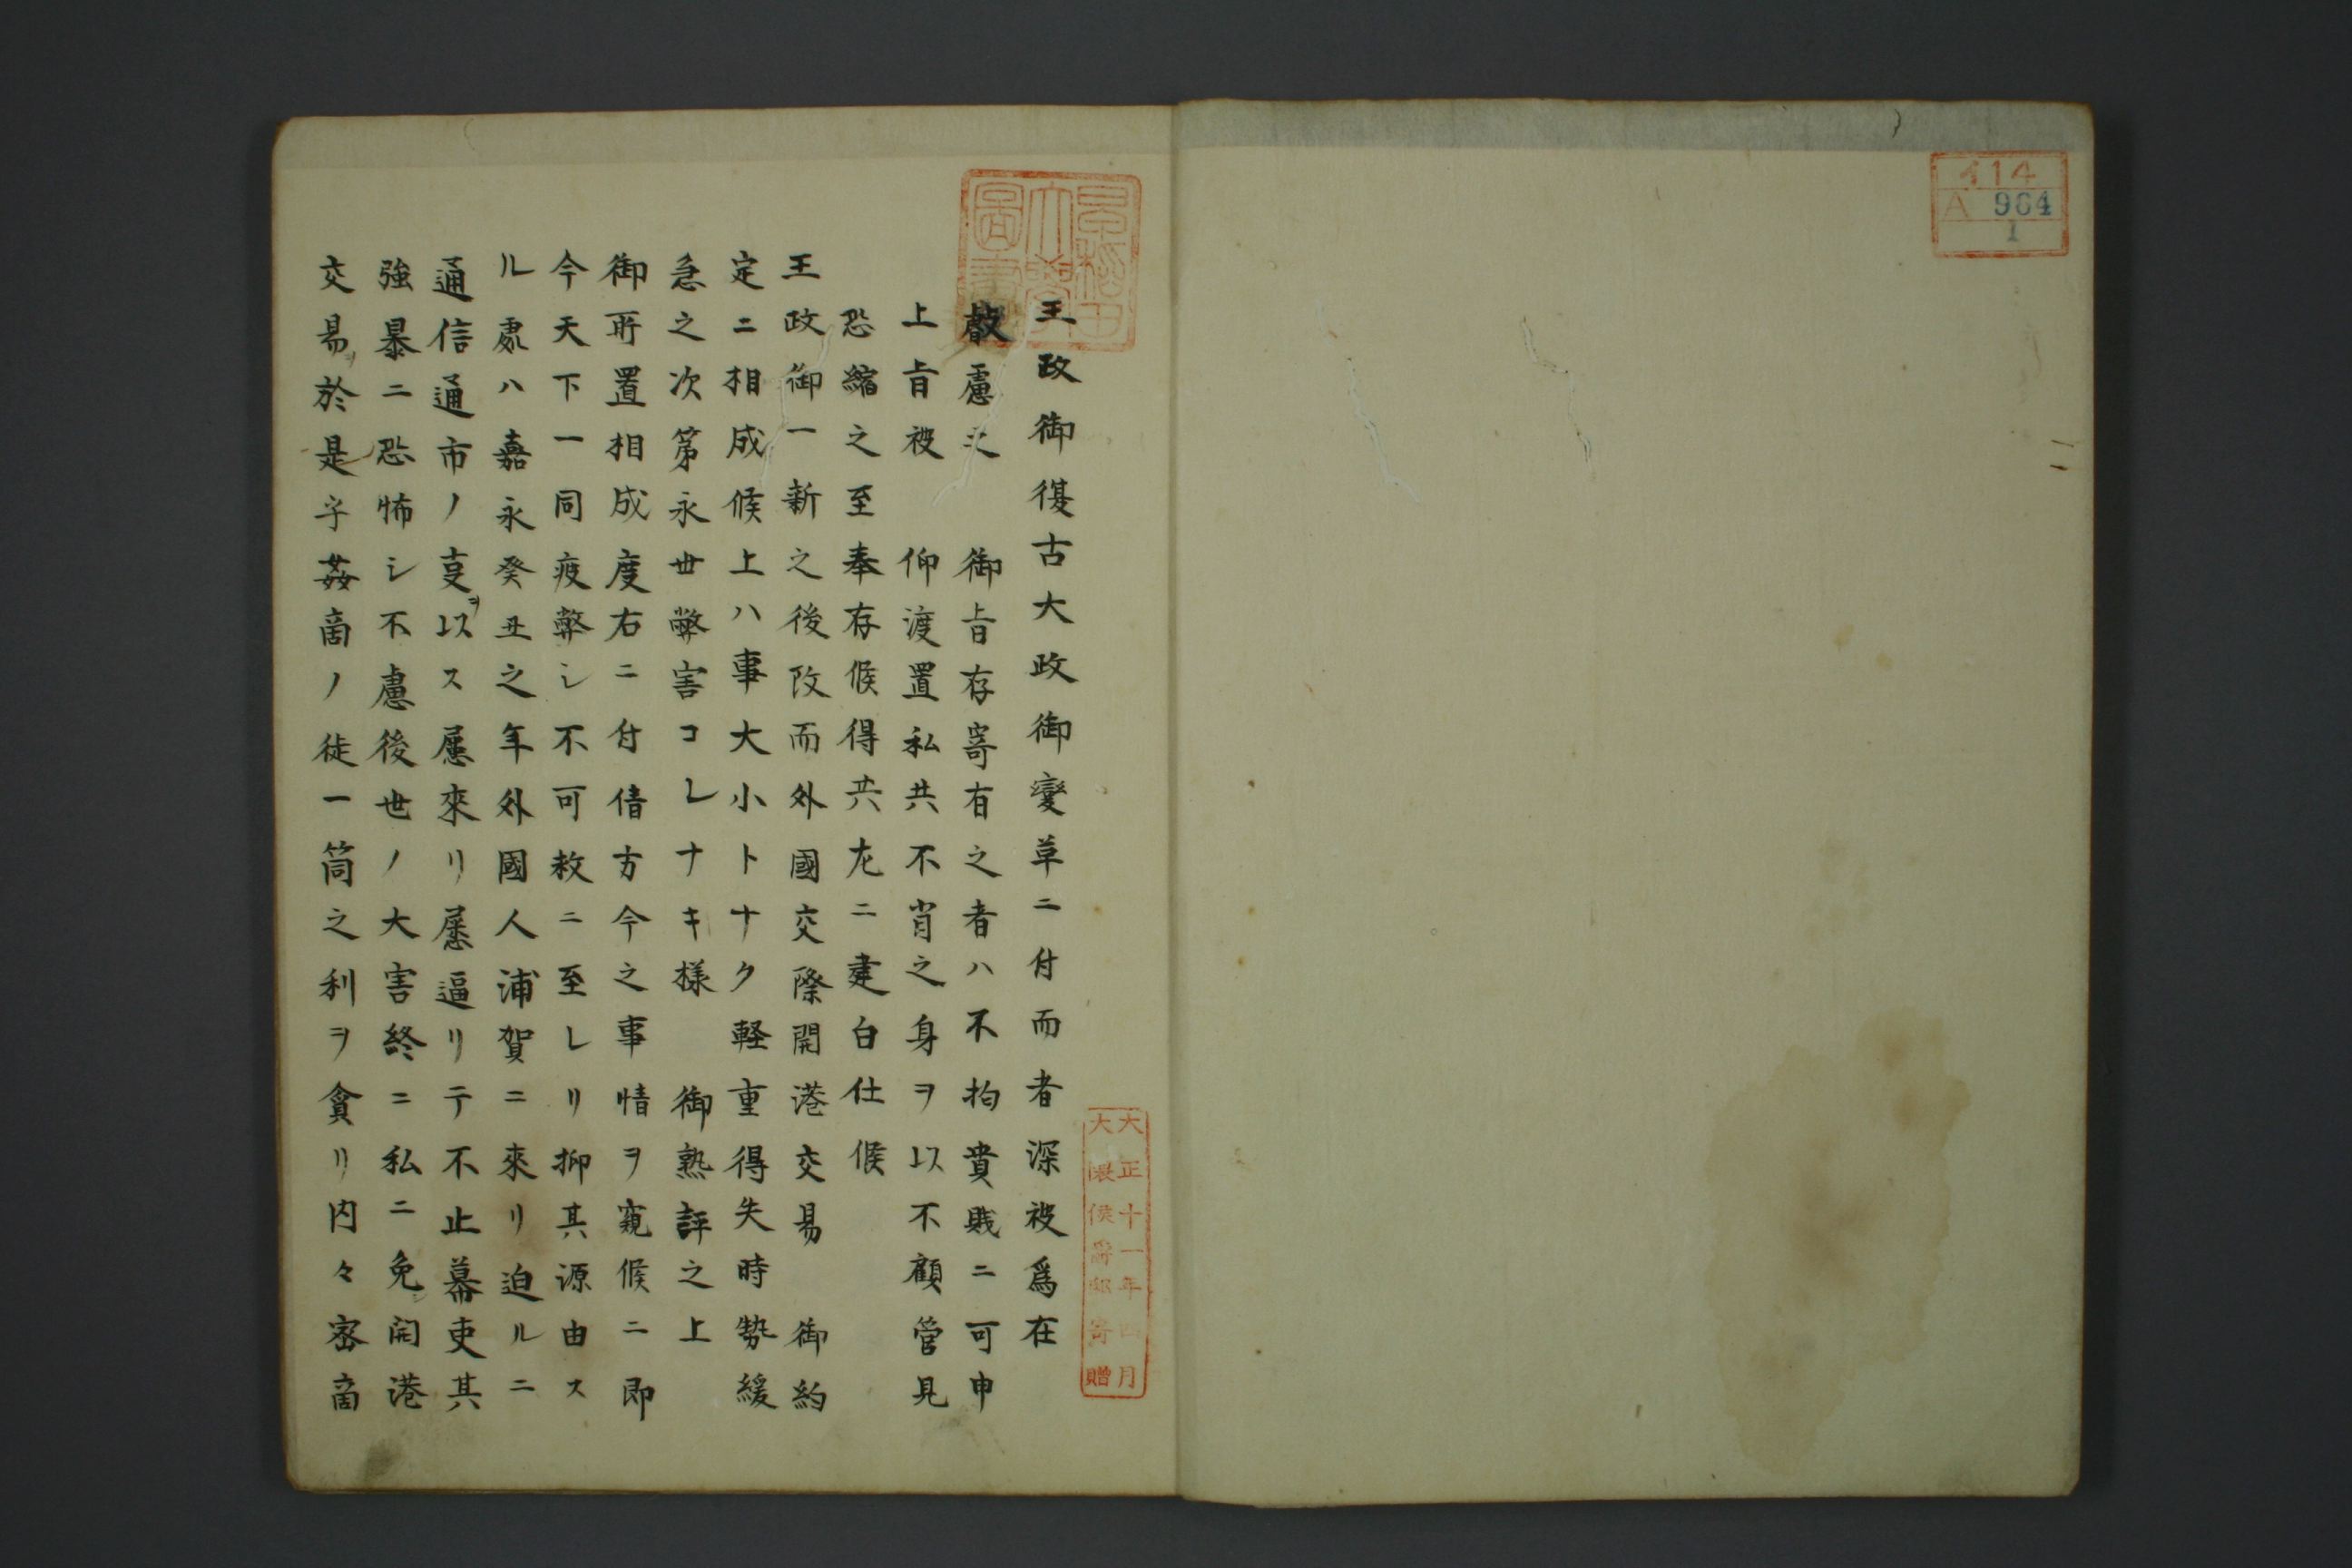 イ14
A 964
1
早稲田
大學
圖書
大正十一年四月
大隈侯爵邸寄贈
王政御復古大政御變革ニ付而者深被爲在
叡慮之　御旨存寄有之者ハ不拘貴賤ニ可申
上旨被　仰渡置私共不肖之身ヲ以不顧管見
恐縮之至奉存候得共左ニ建白仕候
王政御一新之後改而外國交際開港交易　御約
定ニ相成候上ハ事大小トナク軽重得失時勢緩
急之次第永世弊害コレナキ様　御熟評之上
御所置相成度右ニ付倩方今之事情ヲ窺候ニ即
今天下一同疲弊シ不可救ニ至レリ抑其源由ス
ル処ハ嘉永癸丑之年外國人浦賀ニ來リ迫ルニ
通信通市ノ事ヲ以ス屢來リ屢逼リテ不止幕吏其
強暴ニ恐怖シ不慮後世ノ大害終ニ私ニ免シ開港
交易於是乎姦商ノ徒一箇之利ヲ貪リ内々密商